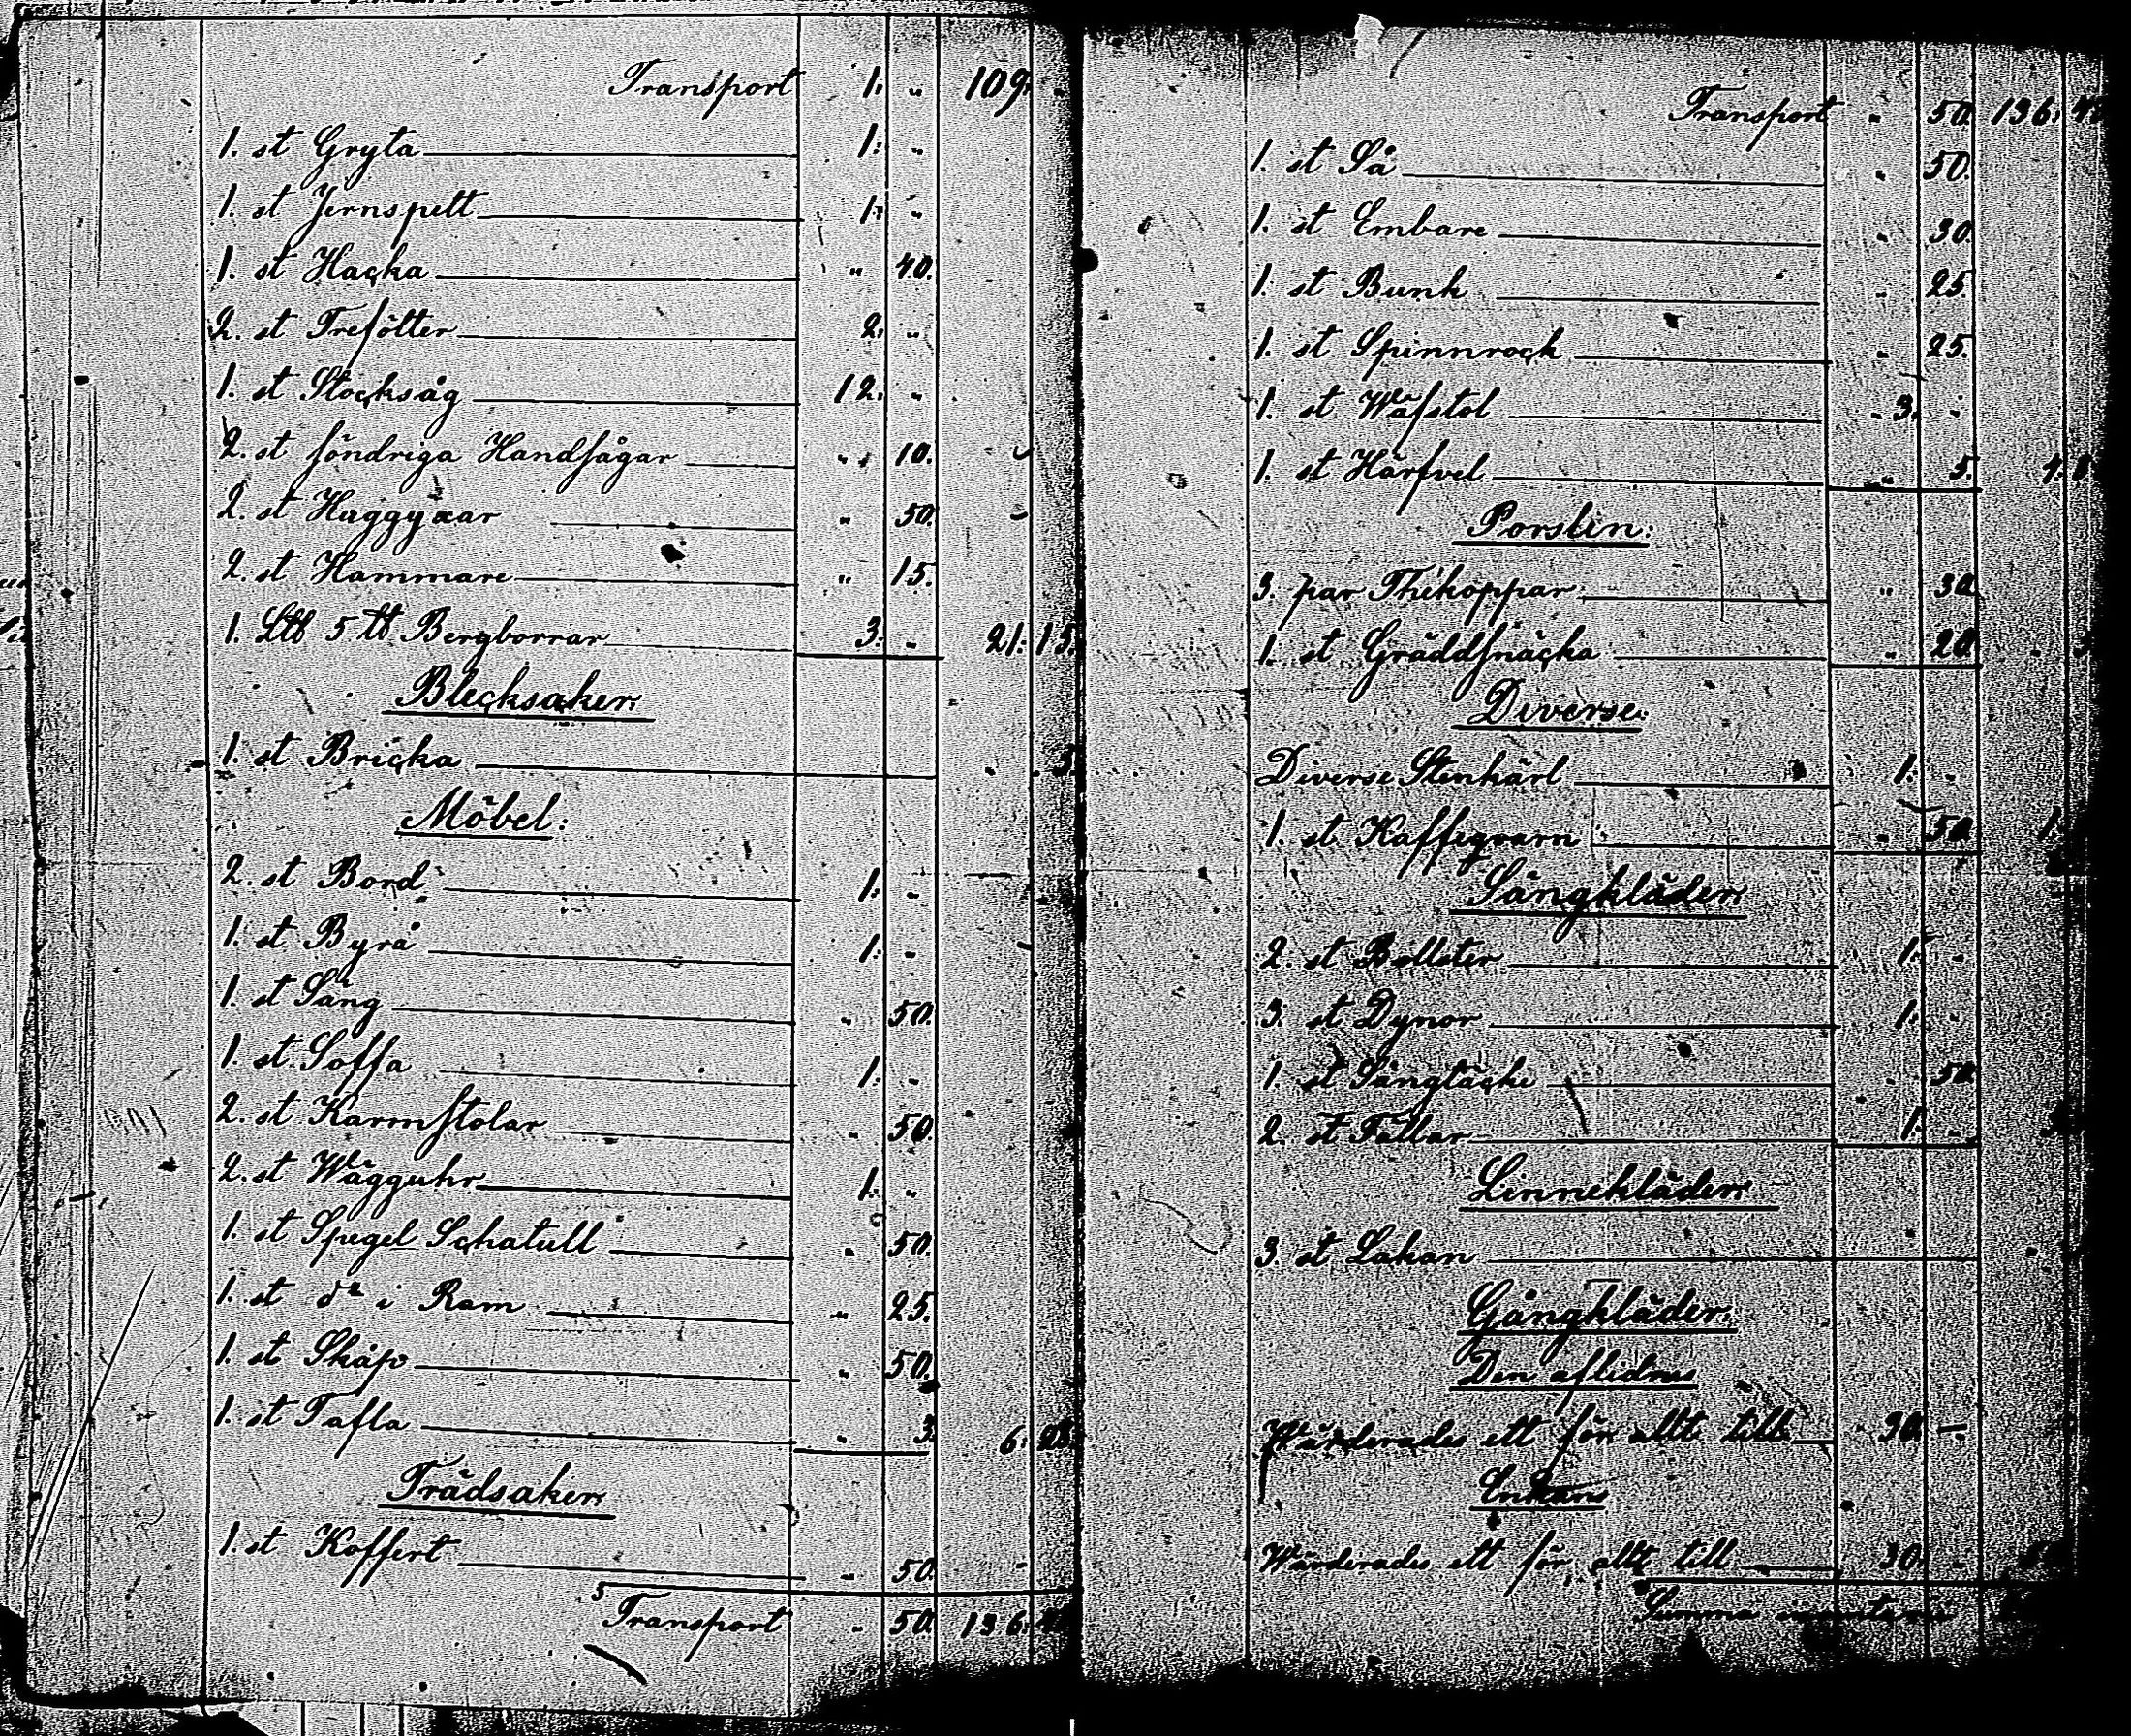 Transport 1. „ 109.
1. st Gryta 1. „
1. st Jernspett 1. „
1. st Hacka „ 40.
2. st Trefötter 2. „
1. st Stocksåg 12. „
2. st söndriga Handsågar „ 10.
2. st Huggyxar „ 50.
2. st Hammare „ 15.
1. L℔ 5 ℔ Bergborrar 3. „ 21. 15.
Blecksaker.
1. st Bricka „
Möbel:
2. st Bord 1. „
1. st Byrå 1. „
1. st Säng „ 50.
1. st Soffa 1. „
2. st Karmstolar „ 50.
2. st Wägguhr 1. „
1. st Spegel Schatull „ 50.
1. st do i Ram „ 25.
1. st Skåp „ 50.
1. st Tafla „ 3. 6.
Trädsaker.
1. st Koffert „ 50.
Transport „ 50. 136.
Transport „ 50. 136.
1. st Så „ 50.
1. st Embare „ 30.
1. st Bunk „ 25.
1. st Spinnrock „ 25.
1. st Wäfstol 3. „
1. st Härfvel „ 5. 4.
Porslin:
3. par Thékoppar „ 30.
1. st Gräddsnäcka „ 20.
Diverse.
Diverse Stenkärl 1. „
1. st Kaffeqvarn „ 50. 1.
Sängkläder
2. st Bollster 1. „
3. st Dynor 1. „
1. st Sängtäcke „ 50.
2. st Fällar 1. „
Linnekläder
3. st Lakan
Gångkläder.
Den aflidnes
Wärderades ett för allt till 30. „
Enkans
Wärderades ett för allt till 30. „
Summa